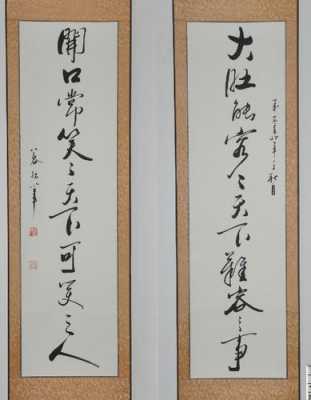 大肚能容容天下難容之事
開口常笑笑天下可笑之人